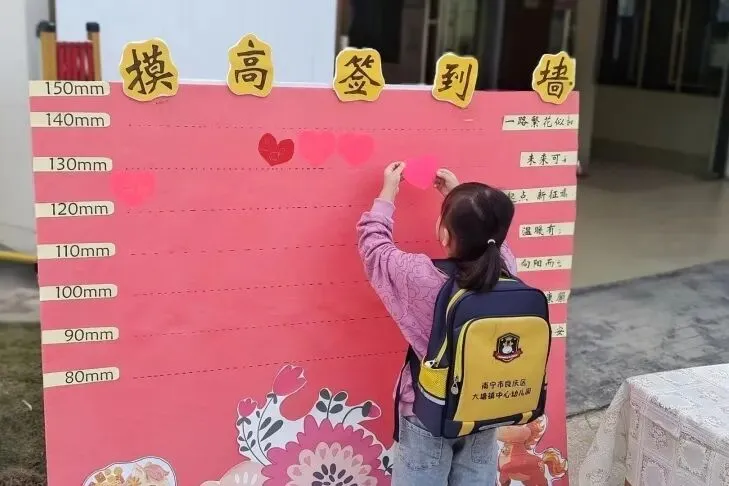 摸高签到墙
150mm
140mm
一路繁花似如
130mm
未来可
120mm
起点 新征程
110mm
温暖有
100mm
向阳而
90mm
80mm
安
南宁市良庆区
大塘镇中心幼儿园